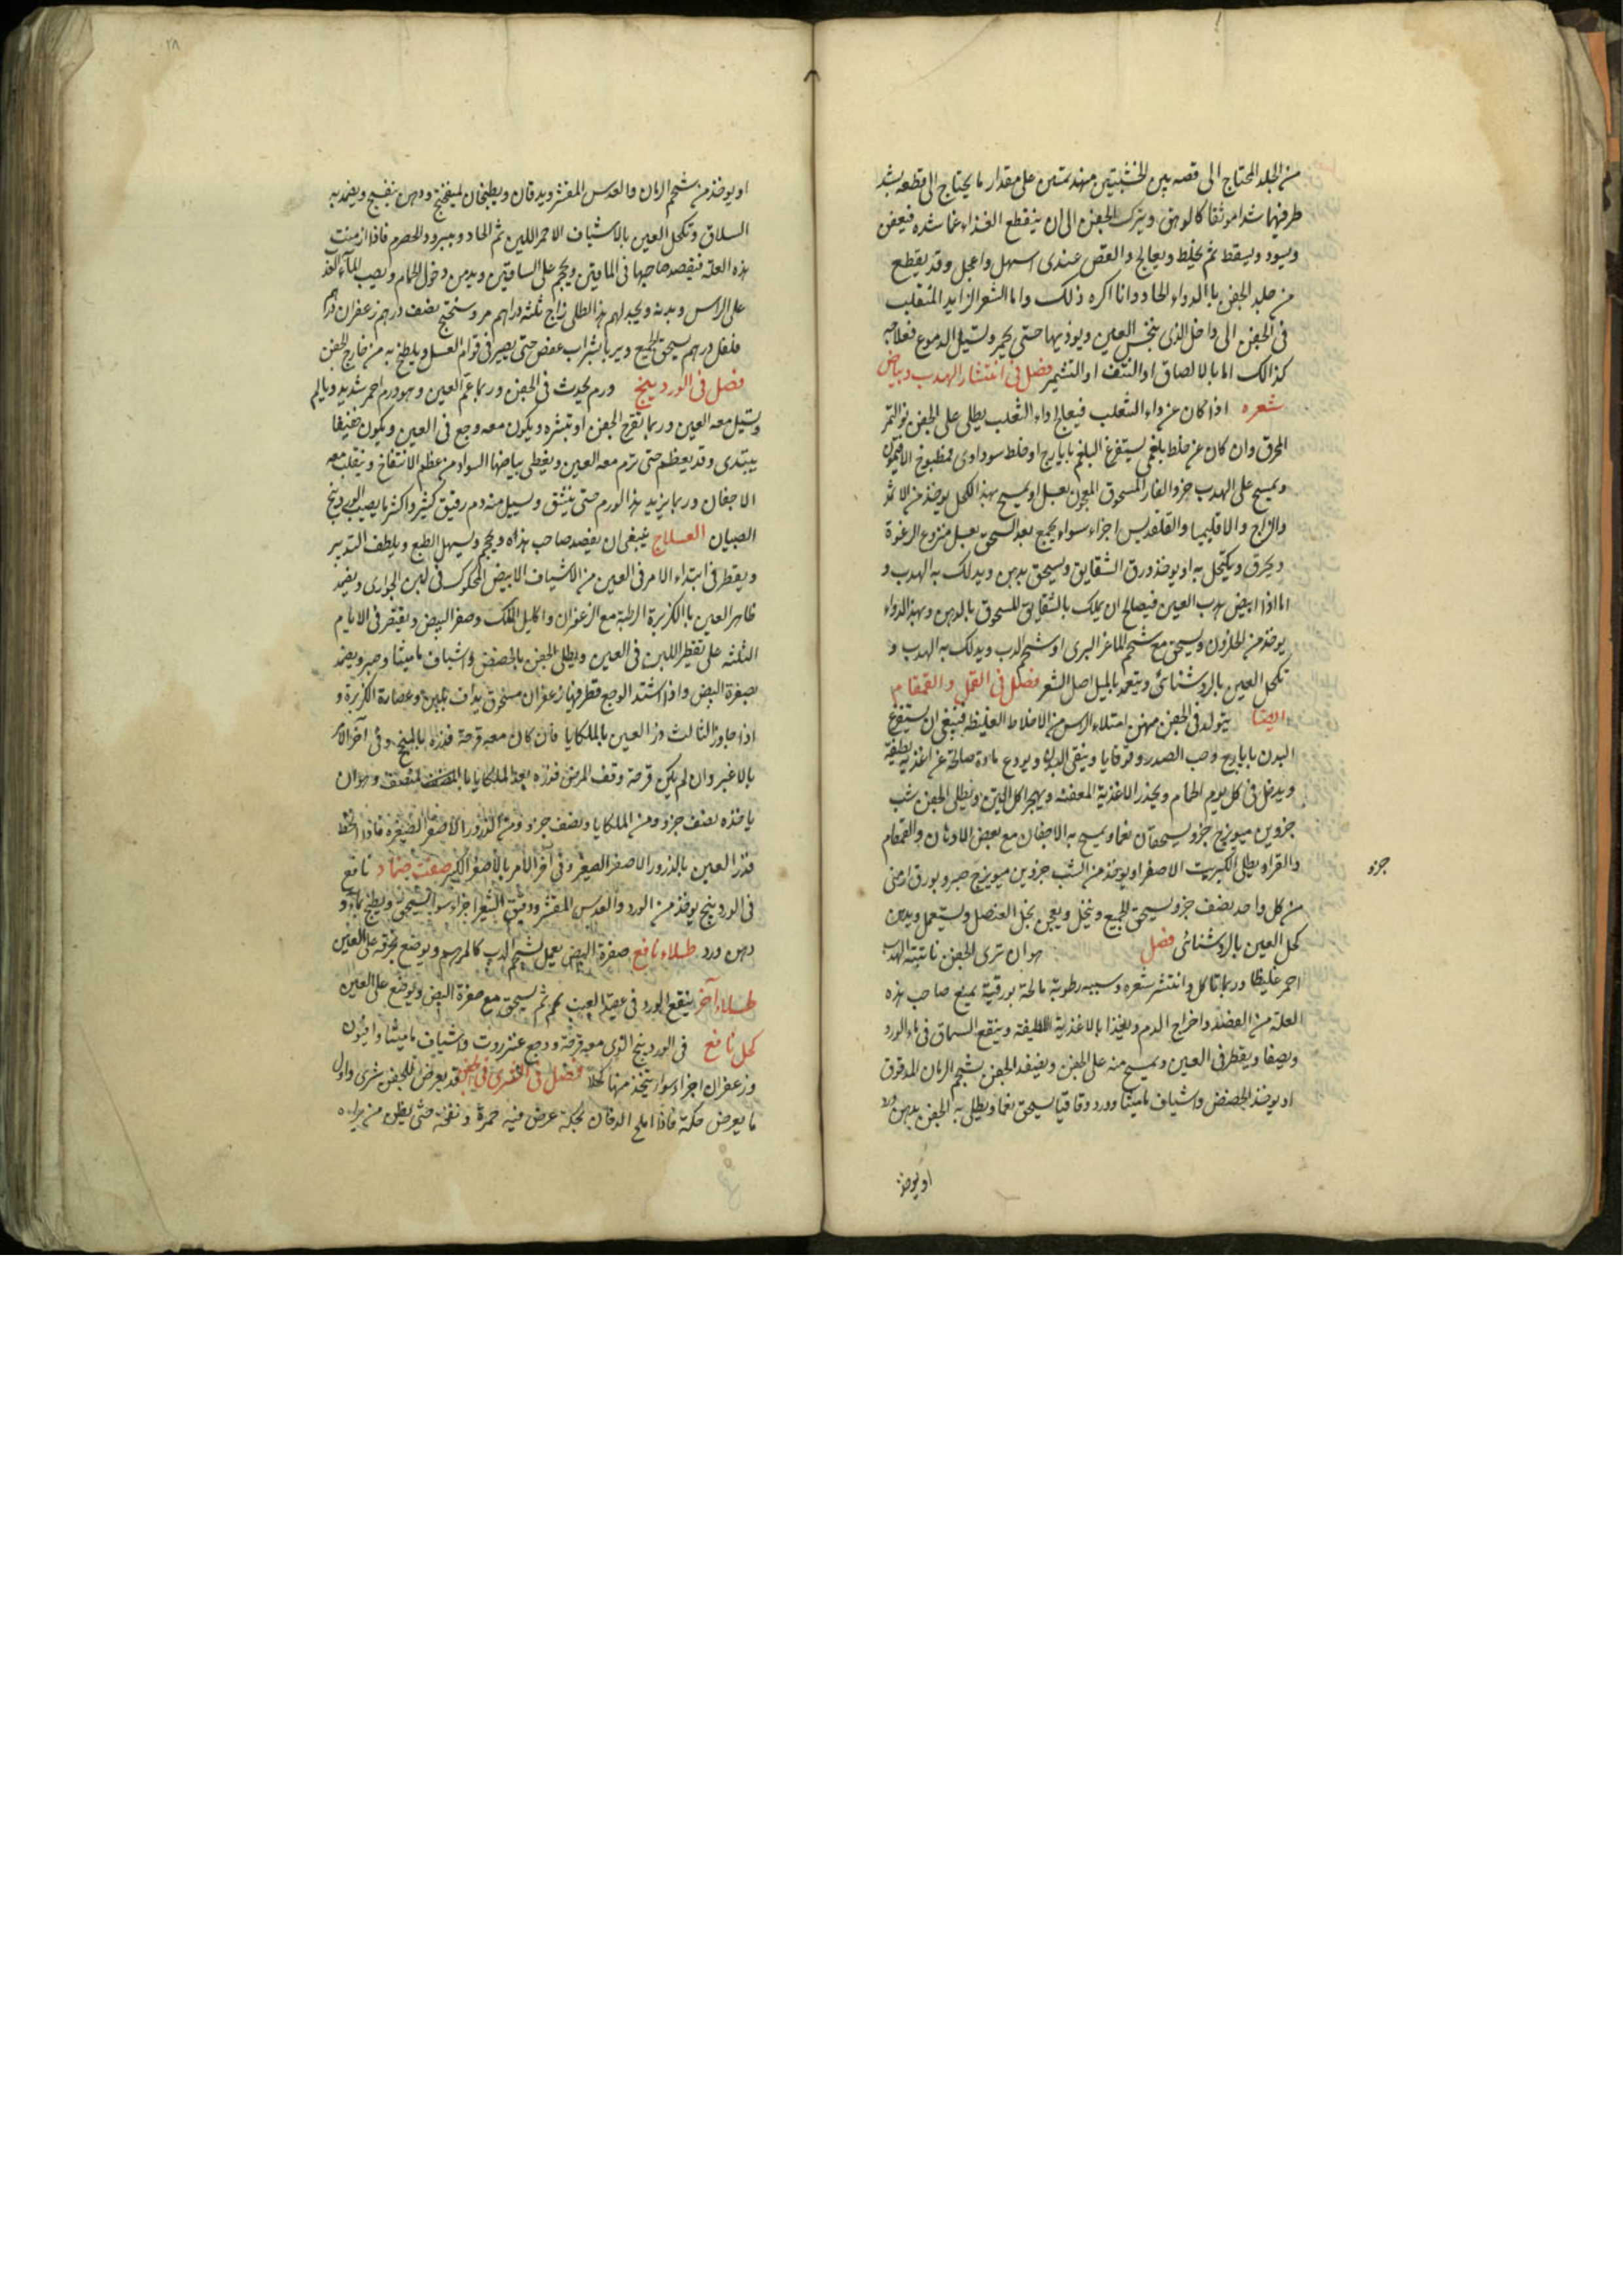 من الجلد المحتاج الى قصه بين الخشبتين مهندمتين على مقدار ما يحتاج الى قطعه يشد
طرفيهما شدا موثقا كالوهق ويترك الجفن الى ان ينقطع الغذاء عما شده فيعفن
ويسود ويسقط ثم يخيط ويعالج والقص عندى اسهل واعجل وقد يقطع
من جلد الجفن باالدواء الحاد وانا اكره ذلك واما الشعر الزايد المنقلب
فى الجفن الى داخل الذى ينخس العين ويوذيها حتى تحمر وتسيل الدموع فعلاجه
كذالك اما بالالصاق او النتف او التشمير فصل فى انتشار الهدب وبياض
شعره اذا كان عن داء الثعلب فيعالج داء الثعلب يطلى على الجفن نوا التمر
المحرق وان كان عن خلط بلغمى يستفرغ البلغم بايارج او خلط سوداوى فمطبوخ الافتيمون
ويمسح على الهدب خرو الفار المسحوق المعجون بعسل او يمسح بهذا الكحل يوخذ من الاثمد
والزاج والاقليميا والقلقديس اجزاء سواء يجمع بعد السحق بعسل منزوع الرغوة
ويحرق ويكتحل به او يوخذ ورق الشقايق ويسحق بدهن ويدلك به الهدب و
اما اذا ابيض هدب العين فيصالح ان يدلك بالشقايق المسحوق بالدهن وبهذا الدواء
يوخذ من الحلزون ويسحق مع شحم الماعز البرى او شحم الدب ويدلك به الهدب و
تكحل العين بالروشنائى ويتعمد بالميل اصل الشعر فصل فى القمل والقمقام
ايضا يتولد فى الجفن من امتلاء الراس من الاخلاط الغليظة فينبغى ان يستفرغ
البدن بايارج وحب الصدر وقوقايا وينقى البدن ويودع مادة صالحة عن اغذية لطيفة
ويدخل فى كل يوم الحمام ويحذر الاغذية المعفنه ويهجر اكل التين ويطلى الجفن شب
جزوين ميويزج جزو يسحقان نعما ويمسح به الاجفان مع بعض الادهان والقمقام
والقراد يطلى الكبريت الاصفر او يوخذ من الشب جزوين ميويزج صبر وبورق ارمنى
جزو
من كل واحد نصف جزو يسحق الجميع وينخل ويعجن بخل العنصل ويستعمل ويدمن
كحل العين بالروشنائى فصل هو ان ترى الجفن نابتة الهدب
احمر غليظا وربما تاكل وانتشر شعره وسببه رطوبة مالحة بورقية يمنع صاحب هذه
العلة من الفصد واخراج الدم ويغذا بالاغذية اللطيفة وينقع السماق فى ماء الورد
ويصفا ويقطر فى العين ويمسح منه على الجفن ويضمد الجفن بشحم الرمان المدقوق
او يوخذ الحضض واشياف ماميثا وورد وقاقيا يسحق نعما ويطلى به الجفن بدهن ورد
او يوخذ
٢٨
او يوخذ من شحم الرمان والعدس المقشر ويدقان ويطبخان بميفختج ودهن بنفسج ويضمد به
السلاق وتكحل العين بالاشياف الاحمر اللين ثم الحاد وببرود الحصرم فاذا ازمنت
هذه العلة فيفصد صاحبها فى الماقين ويحجم على الساقين ويدمن دخول الحمام ويصب الماء العذب
على الراس وبدنه ويجيد لهم هذا الطلى زاج ثلثه دراهم مر وسختج نصف درهم زعفران درهم
فلفل درهم يسحق الجميع ويربا بشراب عفص حتى يصير فى قوام العسل ويلطخ به من خارج الجفن
فصل فى الوردينج ورم يحدث فى الجفن وربما عم العين وهو ورم احمر شديد ويالم
وتسيل معه العين وربما تقرح الجفن او تبثره ويكون معه وجع فى العين ويكون خفيفا
يبتدى وقد يعظم حتى ترم معه العين ويغطى بياضها السواد من عظم الانتفاخ وينقلب معه
الاجفان وربما يزيد هذا الورم حتى ينشق ويسيل منه دم رقيق كثير واكثر ما يصيب الوردينج
الصبيان العلاج ينبغى ان يفصد صاحب هذاه ويحجم ويسهل الطبع ويلطف التدبير
ويقطر فى ابتداء الامر فى العين من الاشياف الابيض المحكوك فى لبن الجوارى ويضمد
ظاهر العين باالكزبرة الرطبة مع الزعفران واكليل الملك وصفر البيض ويقتصر فى الايام
الثلثه على تقطير اللبن فى العين ويطلى الجفن بالحضض واشياف ماميثا وصبر ويضمد
بصفرة البيض واذا اشتد الوجع قطر فيها زعفران مسحوق يداف بلبن وعصارة الكزبرة و
اذا جاوز الثالث ذر العين بالملكايا فان كان معه قرحة فذره بالمنجح وفى آخر الامر
بالاغبر وان لم يكن قرحة وقف المرض فذره بعد الملكايا بالمنصف وهو ان
ياخذه نصف جزو ومن الملكايا ونصف جزو ومن الذرور الاصفر الصغير فاذا انحط
فذر العين بالذرور الاصفر الصغير وفى آخر الامر بالاصفر الكبير صفت ضماد نافع
فى الوردينج يوخذ من الورد والعدس المقشر ودقيق الشعير اجزاء سوا يسحق ويطبخ بماء و
دهن ورد طلاء نافع صفرة البيض يعمل بشحم الدب كالمرهم ويوضع بخرقه على العين
طلاء آخر ينقع الورد فى عصير العنب ثم يسحق مع صفرة البيض ويوضع على العين
كحل نافع فى الوردينج الذى معه قرحة ووجع عنزروت واشياف ماميثا وافيون
وزعفران اجزاء سوا يتخذ منها كحلا فصل فى الشرى فى الجفن قد يعرض للجفن شرى واول
ما يعرض حكة فاذا الح الدقان بحكه عرض فيه حمرة ونفخه حتى يظن من يراه